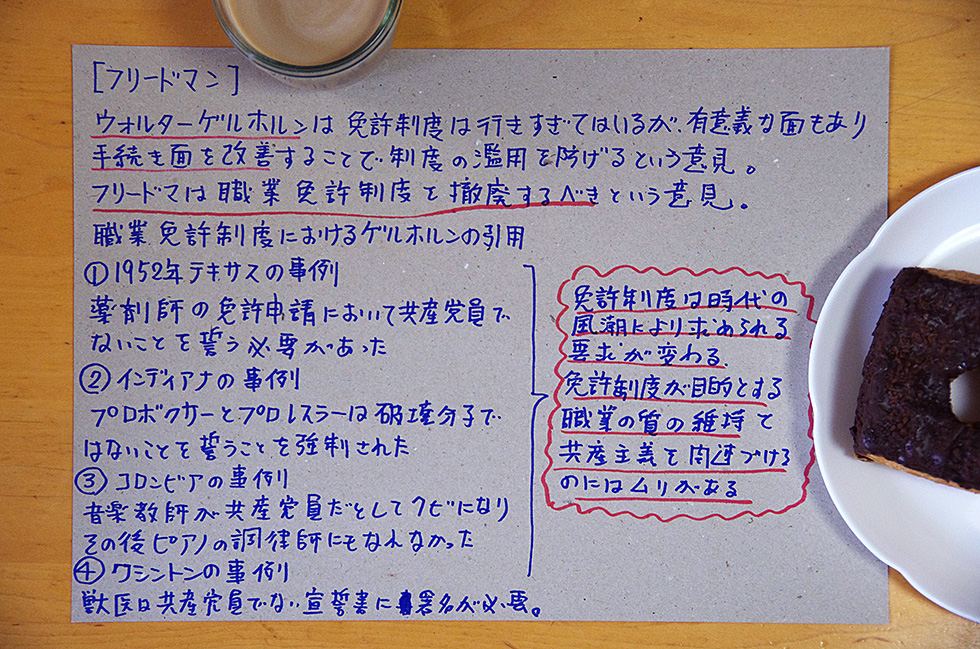 [フリードマン]
ウォルターゲルホルンは免許制度は行きすぎてはいるが、有意義な面もあり
手続き面を改善することで制度の濫用を防げるという意見。
フリードマは職業免許制度を撤廃するべきという意見。
職業免許制度におけるゲルホルンの引用
①1952年テキサスの事例
薬剤師の免許申請において共産党員で
ないことを誓う必要があった
②インディアナの事例
プロボクサーとプロレスラーは破壊分子で
はないことを誓うことを強制された
③コロンビアの事例
音楽教師が共産党員だとしてクビになり
その後ピアノの調律師にもなれなかった
④ワシントンの事例
獣医は共産党員でない宣誓書に署名が必要。
免許制度は時代の
風潮により求められる
要求が変わる.
免許制度が目的とする
職業の質の維持て
共産主義を関連づける
のにはムリがある